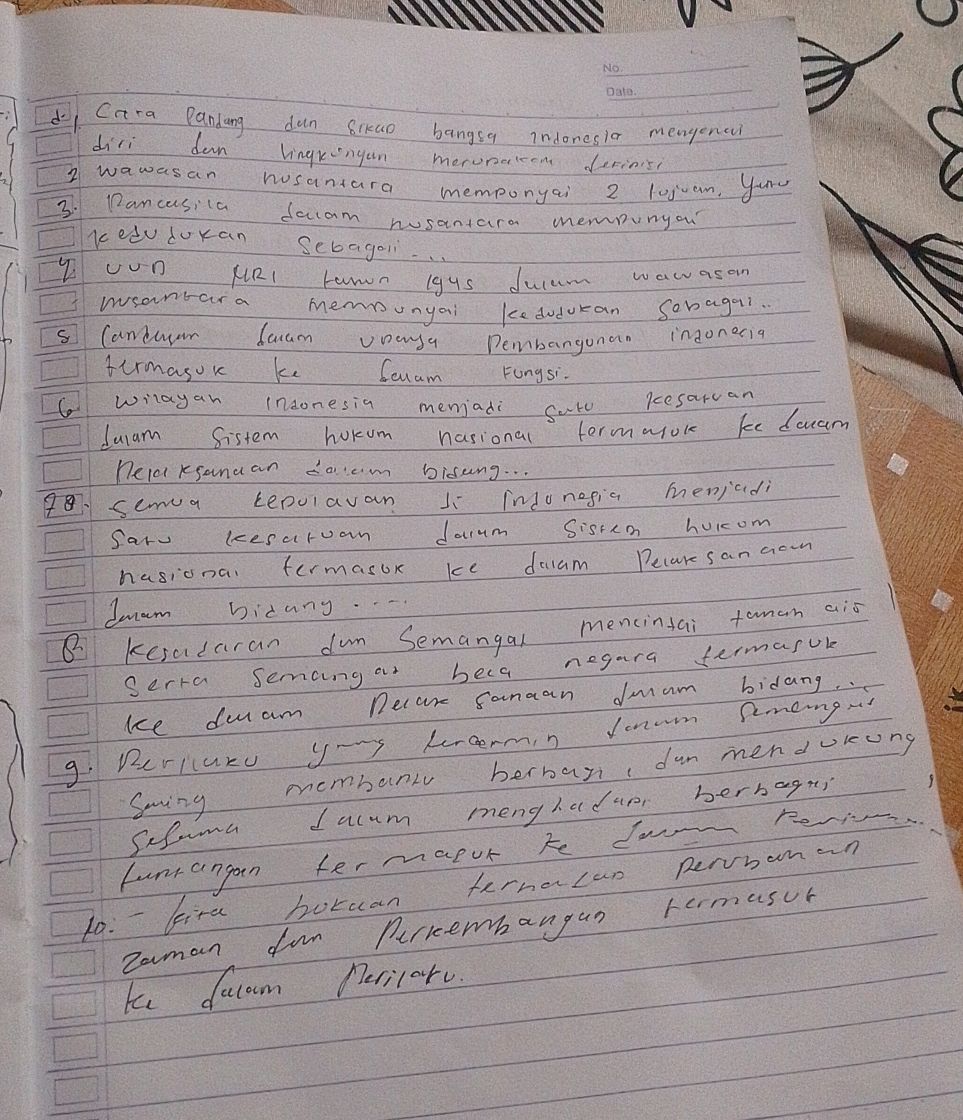 No.
Date.
1. Cara Pandang dan sikap bangsa indonesia mengenai
diri dan lingkungan merupakan definisi
2 wawasan nusantara mempunyai 2 tujuan, yaitu
3. Pancasila dalam nusantara mempunyai
kedudukan sebagai....
4. UUD NRI tahun 1945 dalam wawasan
nusantara mempunyai kedudukan sebagai..
5 dalam upaya Pembangunan indonesia
termasuk ke dalam Fungsi.
6 wilayah indonesia menjadi satu kesatuan
dalam sistem hukum nasional termasuk ke dalam
Pelaksanaan dalam bidang...
7. semua kepulauan di indonesia menjadi
satu kesatuan dalam sistem hukum
nasional termasuk ke dalam Pelaksanaan
dalam bidang....
8. kesadaran dan semangat mencintai tanah air
serta semangat bela negara termasuk
ke dalam Pelaksanaan dalam bidang...
9. Perilaku yang tercermin dalam semangat
saling membantu berbagi, dan mendukung
sesama dalam menghadapi berbagai
tantangan termasuk ke dalam
10. - terhadap perubahan
zaman dan Perkembangan termasuk
ke dalam Perilaku.